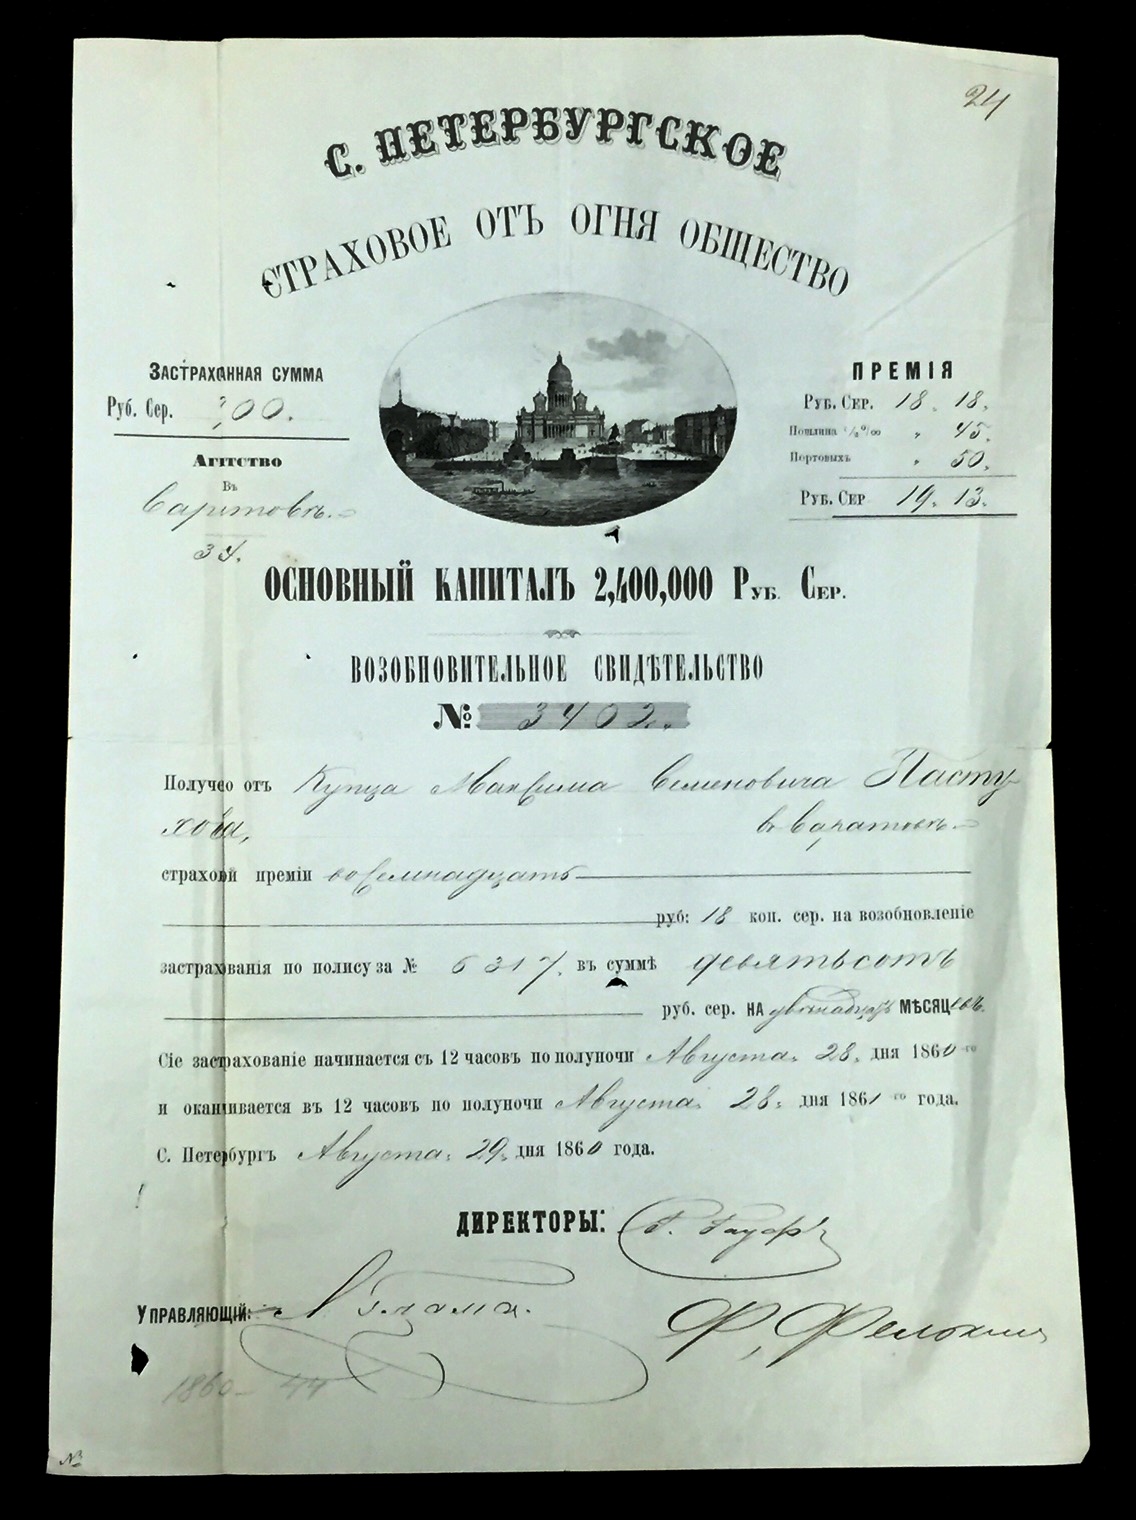 24
С. ПЕТЕРБУРГСКОЕ
СТРАХОВОЕ ОТЪ ОГНЯ ОБЩЕСТВО
ЗАСТРАХОВАННАЯ СУММА
Руб. Сер. 900.
АГЕНТСТВО
Въ
Саратовѣ.
34.
ПРЕМІЯ
РУБ. СЕР. 18. 18.
Пошлина " 45.
Портовыхъ " 50.
РУБ. СЕР 19. 13.
ОСНОВНЫЙ КАПИТАЛЪ 2,400,000 РУБ. СЕР.
ВОЗОБНОВИТЕЛЬНОЕ СВИДѢТЕЛЬСТВО
№ 3402.
Получено отъ Купца Максима Семеновича Пасту-
хова, въ Саратовѣ
страховой преміи восемнадцать
руб: 18 коп. сер. на возобновленіе
застрахованія по полису за № 6317. въ суммѣ девятьсотъ
руб. сер. НА двенадцать МѢСЯЦевъ.
Сіе застрахованіе начинается съ 12 часовъ по полуночи Августа. 28. дня 1860-го
и оканчивается въ 12 часовъ по полуночи Августа. 28. дня 1861 го года.
С. Петербургъ Августа. 29. дня 1860 года.
ДИРЕКТОРЫ:
УПРАВЛЯЮЩІЙ:
1860- 44
№